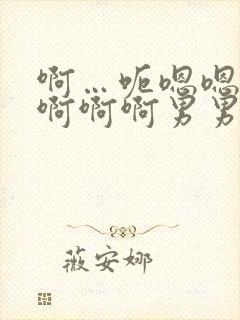 啊…呃嗯嗯
啊啊啊男男
薇安娜